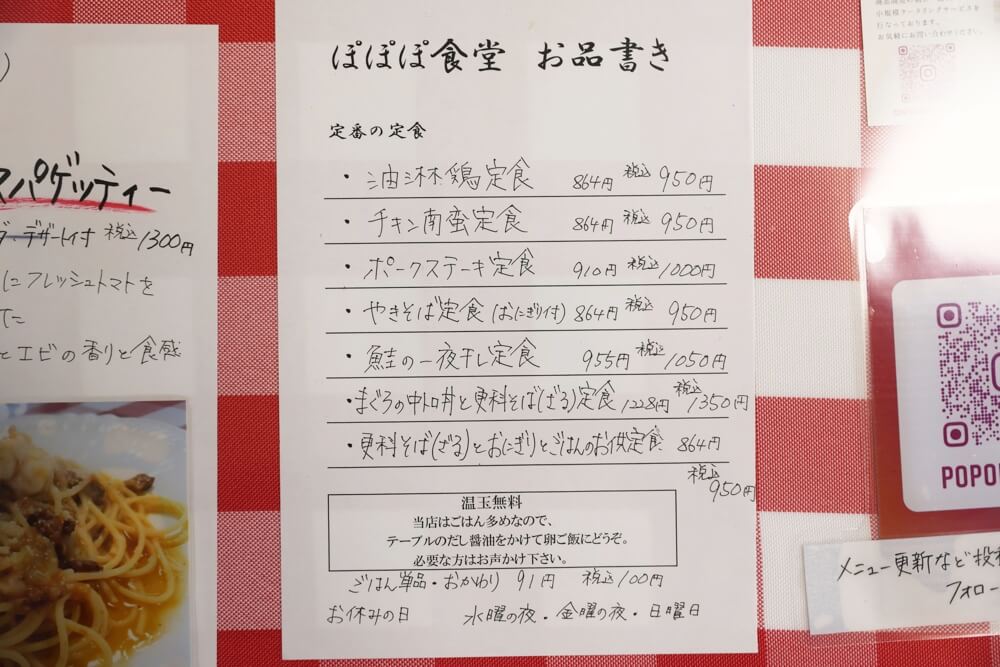 ぽぽぽ食堂 お品書き
定番の定食
・油淋鶏定食 864円 税込 950円
・チキン南蛮定食 864円 税込 950円
・ポークステーキ定食 910円 税込 1000円
・やきそば定食(おにぎり付) 864円 税込 950円
・鮭の一夜干し定食 955円 税込 1050円
・まぐろの中トロ丼と更科そば(ざる)定食 1228円 税込 1350円
・更科そば(ざる)とおにぎりとごはんのお供定食 864円
税込 950円
温玉無料
当店はごはん多めなので、
テーブルのだし醤油をかけて卵ご飯にどうぞ。
必要な方はお声かけ下さい。
ごはん単品・おかわり 91円 税込 100円
お休みの日 水曜の夜・金曜の夜・日曜日
スパゲッティー
デザート付 税込 1300円
にフレッシュトマトを
とエビの香りと食感
小規模ケータリングサービスを
行なっております。
お気軽にお問い合わせください。
POPO
メニュー更新など投稿
フォロー